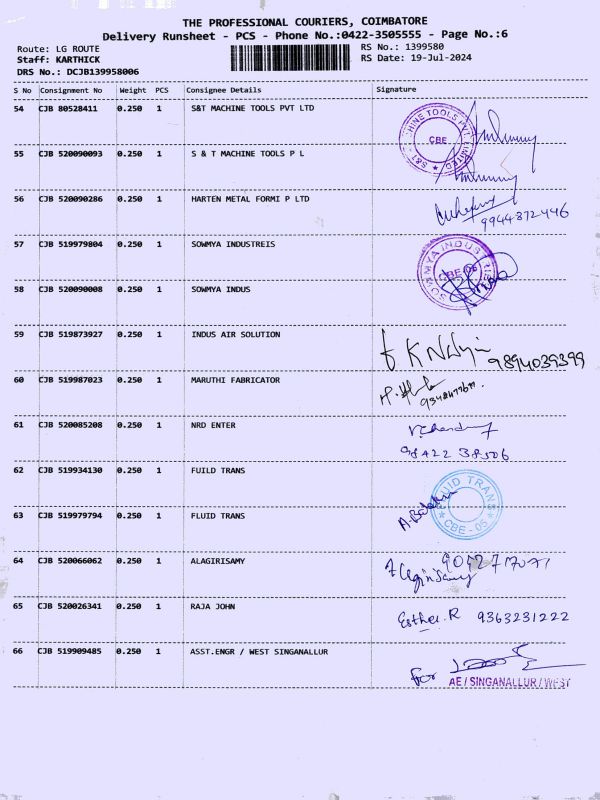 THE PROFESSIONAL COURIERS, COIMBATORE
Delivery Runsheet - PCS - Phone No.:0422-3505555 - Page No.:6
Route: LG ROUTE
RS No.: 1399580
Staff: KARTHICK
RS Date: 19-Jul-2024
DRS No.: DCJB139958006
S No Consignment No Weight PCS Consignee Details Signature
54 CJB 80528411 0.250 1 S&T MACHINE TOOLS PVT LTD
S&T MACHINE TOOLS PVT. LIMITED CBE
55 CJB 520090093 0.250 1 S & T MACHINE TOOLS P L
56 CJB 520090286 0.250 1 HARTEN METAL FORMI P LTD
9944372446
57 CJB 519979804 0.250 1 SOWMYA INDUSTREIS
SOWMYA INDUSTRIES CBE-05
58 CJB 520090008 0.250 1 SOWMYA INDUS
59 CJB 519873927 0.250 1 INDUS AIR SOLUTION
9894039399
60 CJB 519987023 0.250 1 MARUTHI FABRICATOR
61 CJB 520085208 0.250 1 NRD ENTER
98422 38506
62 CJB 519934130 0.250 1 FUILD TRANS
FLUID TRANS CBE - 05
63 CJB 519979794 0.250 1 FLUID TRANS
64 CJB 520066062 0.250 1 ALAGIRISAMY
65 CJB 520026341 0.250 1 RAJA JOHN
Esther.R 9363231222
66 CJB 519909485 0.250 1 ASST.ENGR / WEST SINGANALLUR
for
AE / SINGANALLUR / WEST